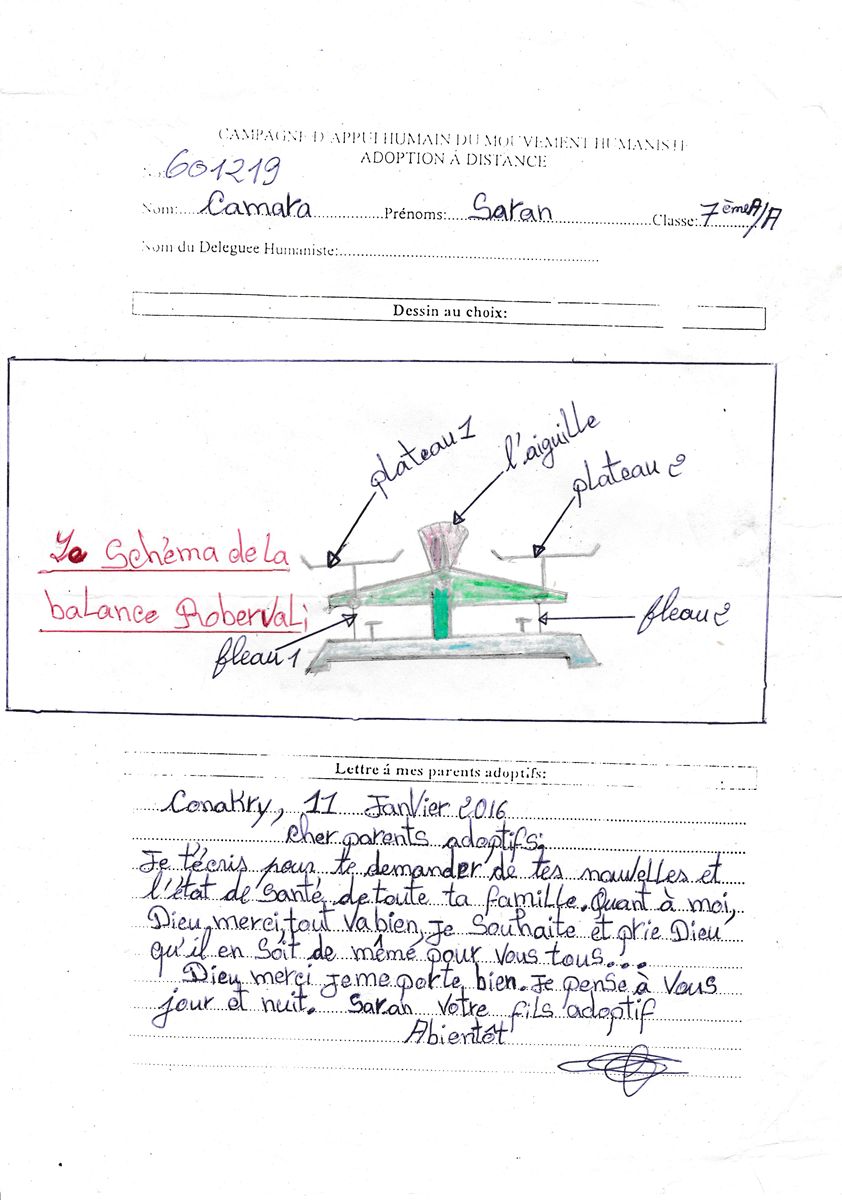 CAMPAGNE D'APPUI HUMAIN DU MOUVEMENT HUMANISTE
ADOPTION À DISTANCE
No: 601219
Nom: Camara Prénoms: Saran Classe: 7èmeA/A
Nom du Deleguee Humaniste:
Dessin au choix:
plateau 1
l'aiguille
plateau 2
Le Schéma de la
balance Robervali
fleau 1
fleau 2
Lettre á mes parents adoptifs:
Conakry, 11 Janvier 2016
cher parents adoptifs;
Je t'écris pour te demander de tes nouvelles et
l'état de Santé de toute ta famille. Quant à moi,
Dieu merci, tout va bien, Je Souhaite et prie Dieu
qu'il en Soit de mêmé pour Vous tous...
Dieu merci Je me porte bien. Je pense à Vous
jour et nuit. Saran Votre fils adoptif
Abientôt